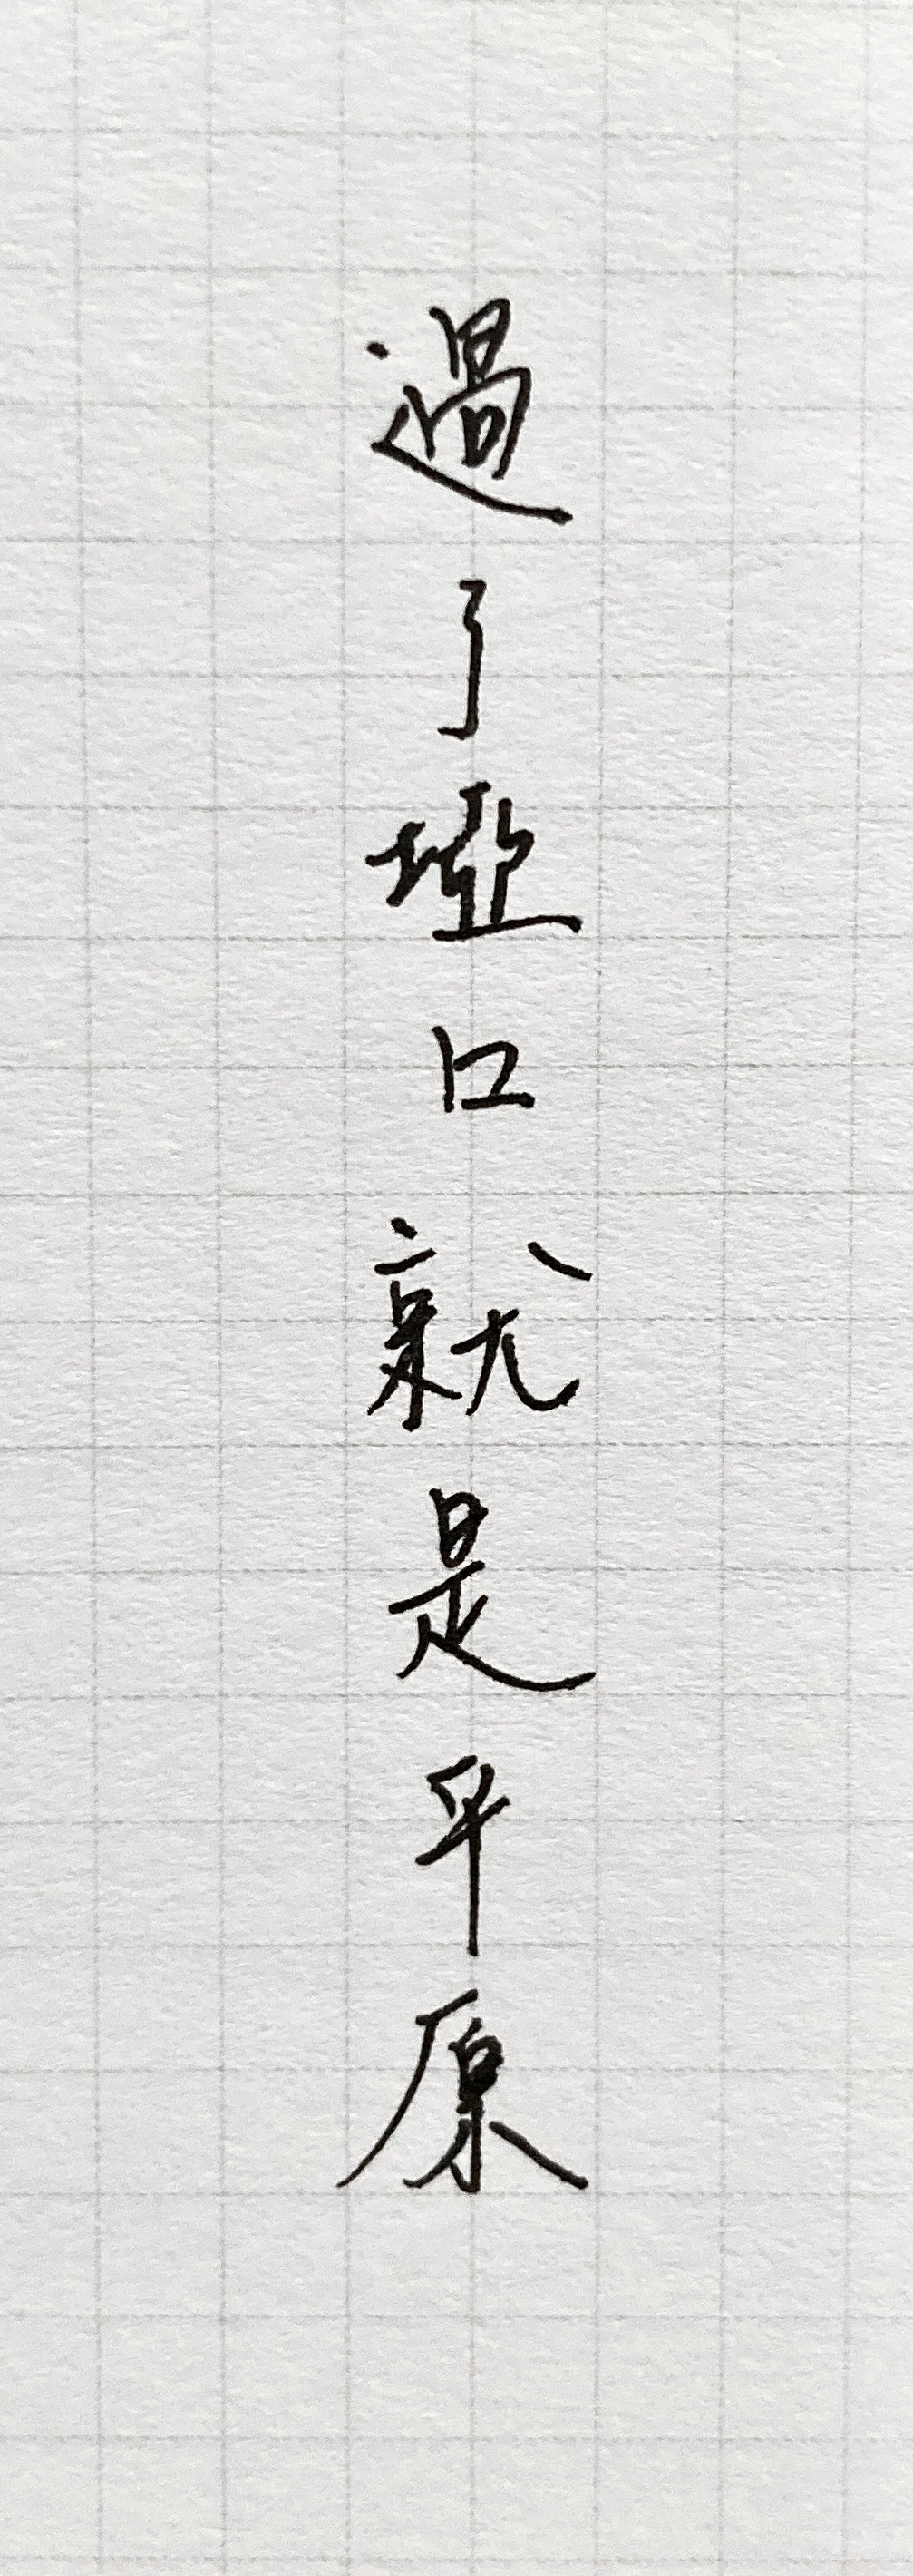 過了埡口就是平原